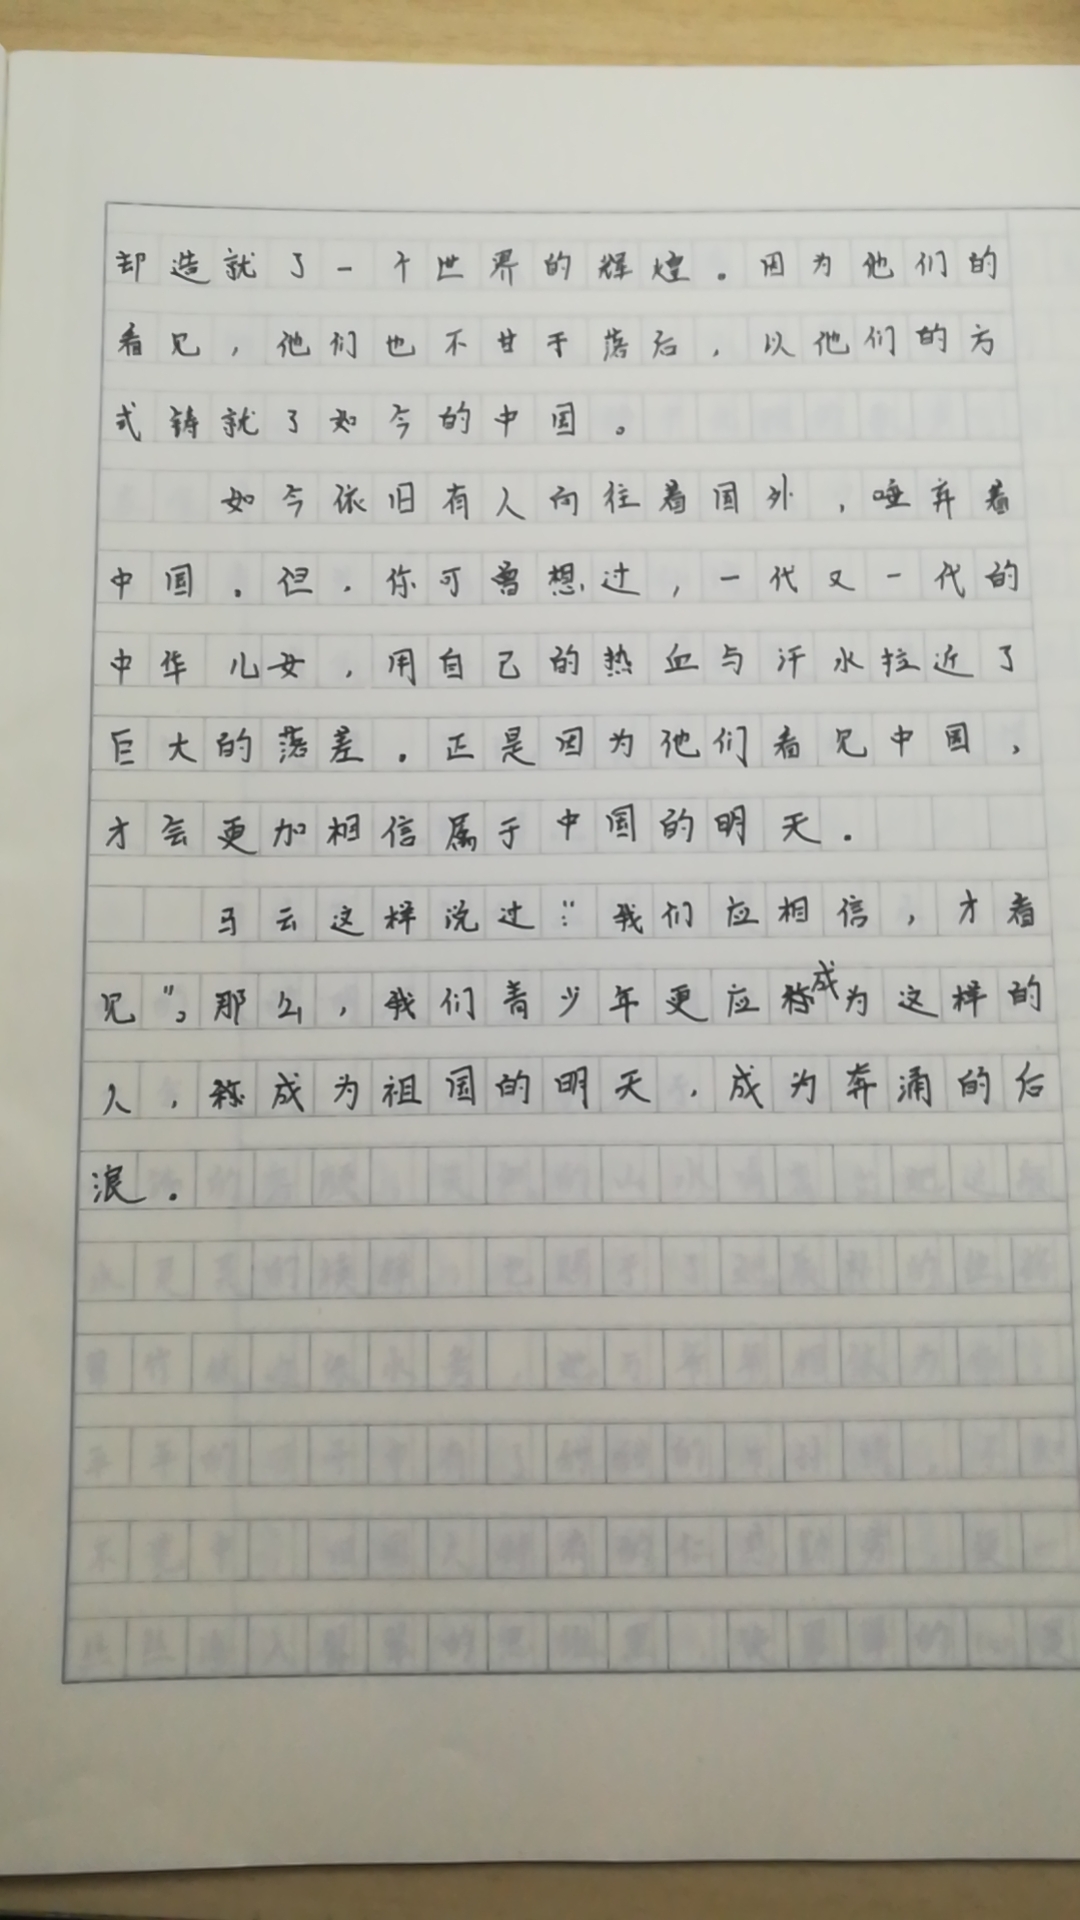 却造就了一个世界的辉煌。因为他们的
看见，他们也不甘于落后，以他们的方
式铸就了如今的中国。
如今依旧有人向往着国外，唾弃着
中国。但，你可曾想过，一代又一代的
中华儿女，用自己的热血与汗水拉近了
巨大的落差。正是因为他们看见中国，
才会更加相信属于中国的明天。
马云这样说过：“我们应相信，才看
见”。那么，我们青少年更应成为这样的
人，成为祖国的明天，成为奔涌的后
浪。